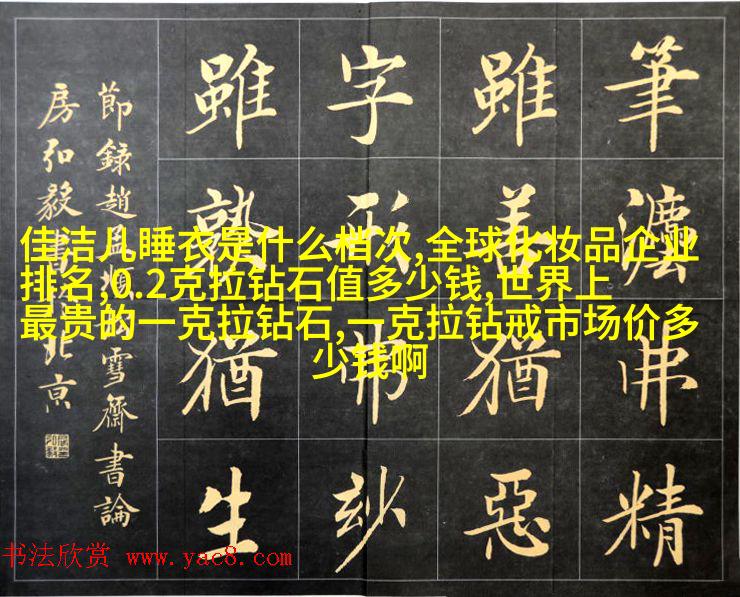 佳洁儿睡衣是什么档次,全球化妆品企业
排名,0.2克拉钻石值多少钱,世界上
最贵的一克拉钻石,一克拉钻戒市场价多
少钱啊
筆灋弗精
雖善猶惡
字形弗妙
雖熟猶生
節錄趙孟頫雪齋書論
房弘毅書北亰
书法欣赏 www.yac8.com